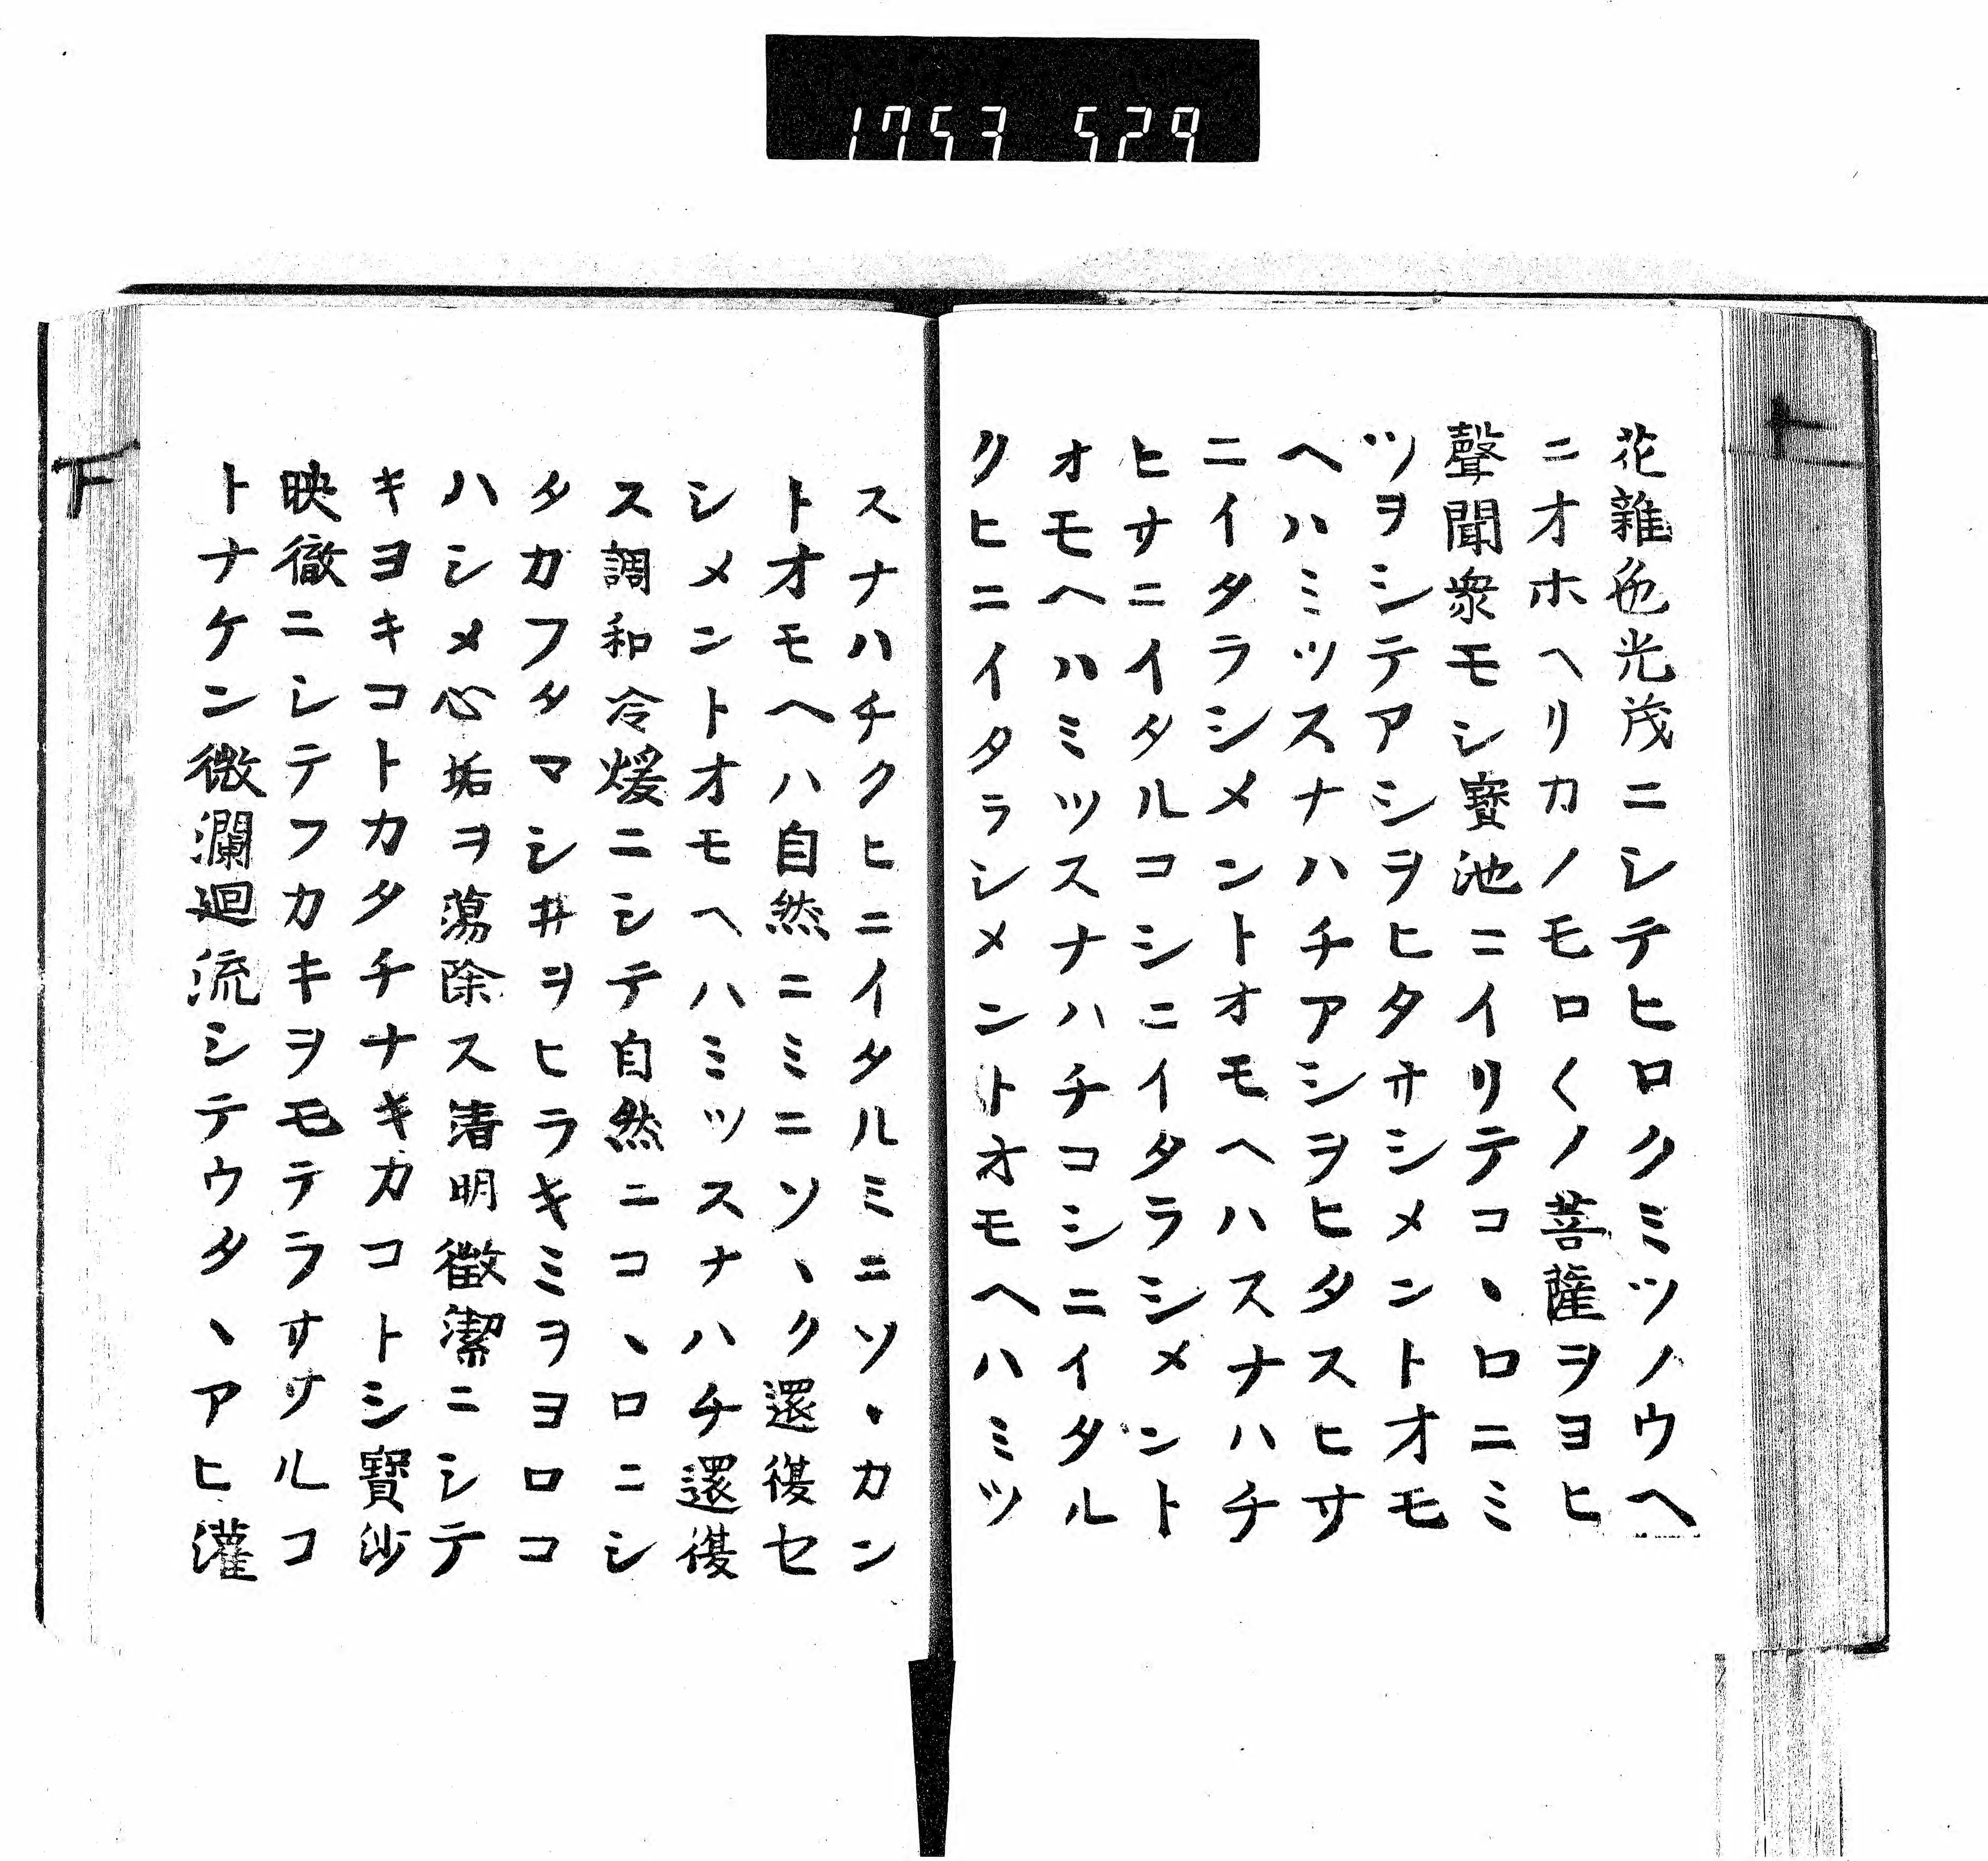 1753 529
花雜色光茂ニシテヒロクミツノウヘ
ニオホヘリカノモロ〱ノ菩薩ヲヨヒ
聲聞衆モシ寶池ニイリテコヽロニミ
ツヲシテアシヲヒタサシメントオモ
ヘハミツスナハチアシヲヒタスヒサ
ニイタラシメントオモヘハスナハチ
ヒサニイタルコシニイタラシメント
オモヘハミツスナハチコシニイタル
クヒニイタラシメントオモヘハミツ
スナハチクヒニイタルミニソヽカン
トオモヘハ自然ニミニソヽク還復セ
シメントオモヘハミツスナハチ還復
ス調和冷煖ニシテ自然ニコヽロニシ
タカフタマシ井ヲヒラキミヲヨロコ
ハシメ心垢ヲ蕩除ス清明徵潔ニシテ
キヨキコトカタチナキカコトシ寶沙
映徹ニシテフカキヲモテラササルコ
トナケン微瀾迴流シテウタヽアヒ灌